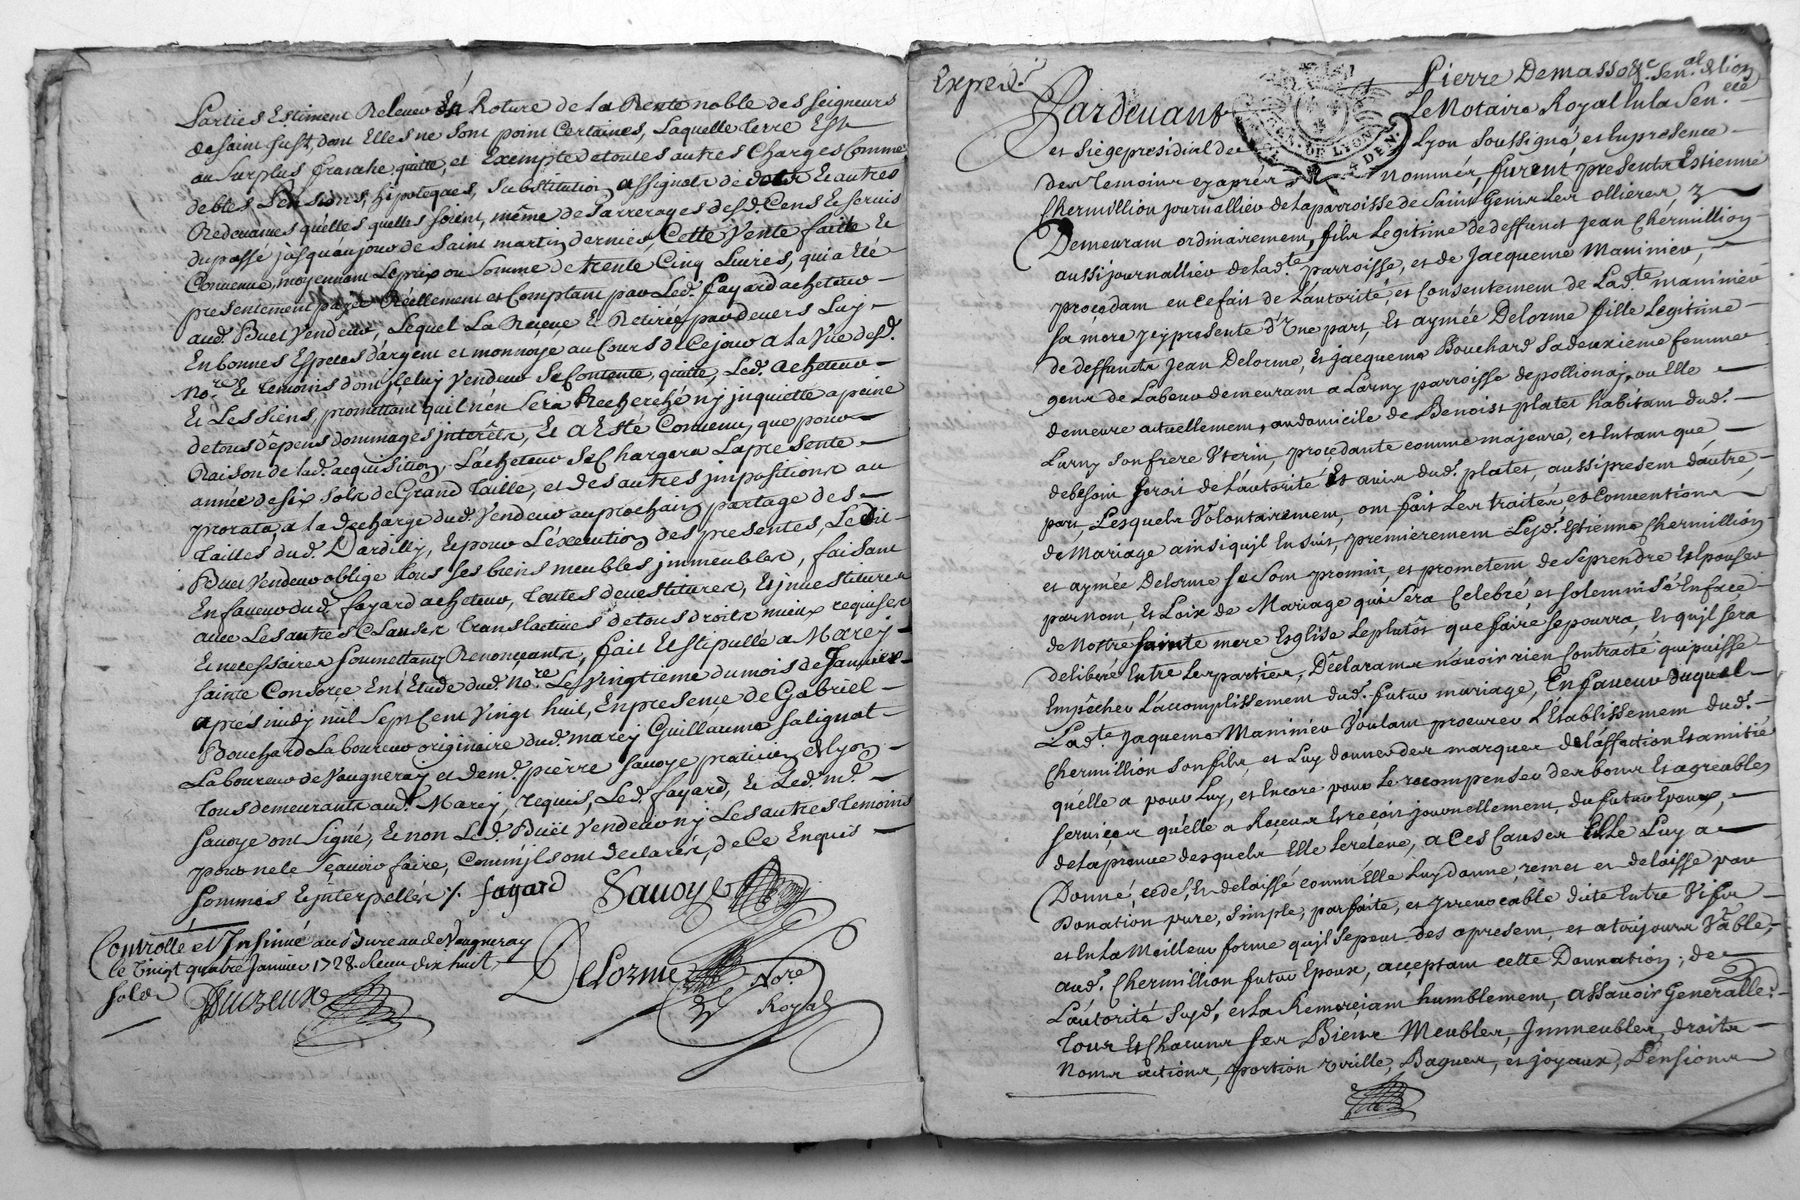 Parties Estiment Relever En Roture de la Rente noble des seigneurs
de saint just, dont Elles ne sont point Certaines, Laquelle terre Est
au surplus franche, quitte, et Exempte de toutes autres Charges Comme
debtes Pensions, hipoteques, substitution assignats de dots Et autres
Redevances qu'elles quelles soient, même de Larrerages desd. Cens Et servis
du passé jusqu'aujourd de saint martin dernier, Cette Vente faitte Et
Convenue, moyennant Le prix ou somme de trente Cinq Livres, qui a Eté
presentement payée Réellement et Comptant par Led. fayard acheteur
aud. Buet Vendeur, Lequel La Reçeue Et Retirée pardevers Luy
En bonnes Especes d'argent et monnoye au Cours de Ce jour a La Vüe desd.
No.re Et temoins dont Iceluy Vendeur se Contente, quitte, Led. acheteur
Et Les siens, promettant qu'il n'en sera Recherché ny inquietté a peine
de tous dépens dommages interêts, Et a Esté Convenu, que pour
Raison de lad. acquisition, L'acheteur se Chargera La presente
année de six sols de Grand Taille, et des autres impositions au
prorata, a la decharge dud. Vendeur au prochain partage des
tailles dud. Dardilly, Et pour L'éxecution des presentes, Ledit
Buet Vendeur oblige tous ses biens meubles immeubles, faisant
En faveur dud. fayard acheteur, toutes devestitures, Et investitures
avec Les autres Clauses translatives de tous droits mieux requises
Et necessaires soumettant Renonçants, fait Et stipullé a Marcy
sainte Consorce En l'Etude dud. No.re Le vingtieme du mois de Janvier
après midy mil sept Cent vingt huit, En presence de Gabriel
Bouchard Laboureur originaire dud. marcy Guillaume salignat
Laboureur de Vaugneray et dem.d. pierre savoye praticien de lyon
tous demeurants aud. Marcy, requis, Led. fayard, Et Led. m.d.
savoye ont signé, Et non Led. Buët Vendeur ny Les autres temoins
pour ne le sçavoir faire, Comm'ils ont declarés, de Ce Enquis
sommés Et interpellés ./. fayard Savoye
Controllé et Insinué au Bureau de Vaugneray
le vingt quatre Janvier 1728. Reçu dix huit
sols
Delorme No.re
Royal
Expedi
Pierre Demasso Sen.al de lion
Pardevant Le Notaire Royal En la Sen.cée
et siege presidial de Lyon soussigné, et En presence
GEN. OF LYON
des temoins cy aprés nommés, furent presents Estienne
Chermillion journallier de la parroisse de Saint Genis Les ollieres, y
Demeurant ordinairement, fils Legitime de deffunct Jean Chermillion
aussi journallier de lad.te parroisse, et de Jacqueme Maninier,
procedant en ce fait de L'autorité et Consentement de Lad.te maninier
sa mere icy presente d'Une part, Et aymée Delorme fille Legitime
de deffuncts Jean Delorme, Et jacqueme Bouchard sa deuxieme femme
gens de Labeur demeurant a Larny parroisse de pollionaj, ou Elle
demeure actuellement, au domicile de Benoist platet habitant dud.
Larny son frere Uterin, procedante comme majeure, et En tant que
de besoin seroit de L'autorité Et avis dud. platet, aussi present d'autre
part, Lesquels Volontairement, ont fait Les traités, et Conventions
de Mariage ainsi qu'il En suit, premierement Lesd. Estienne Chermillion
et aymée Delorme se sont promis, et prometent de se prendre Et Epouser
par nom, Et Loix de Mariage qui sera Celebré et solemnisé En face
de Nostre sainte mere Eglise Le plutôt que faire se pourra, Et qu'il sera
deliberé Entre Les parties, Déclarants n'avoir rien Contracté qui puisse
Empêcher L'accomplissement dud. futur mariage, En faveur duquel
Lad.te Jaqueme Maninier Voulant procurer L'Etablissement dud.
Chermillion son fils, et Luy donner des marques de l'affection Et amitié
qu'elle a pour Luy, et Encore pour Le recompenser des bons Et agreables
services qu'elle a Reçeus Et reçoit journellement du futur Epoux,
de la preuve desquels Elle Le reléve, a Ces Causes Elle Luy a
Donné, cedé, Et delaissé comm'Elle Luy donne, remet et delaisse par
Donation pure, simple, parfaite, et Irrevocable dite Entre Vifs
et En La Meilleur forme qu'il se peut des apresent, et a toujours Vable,
aud. Chermillion futur Epoux, acceptant cette Donnation, de
L'autorité Sujd. et La Remerciant humblement, assavoir Generalle.t
Tous Et Chacuns ses Biens Meubles, Immeubles, droits
Noms actions, portion virille, Bagues, et joyaux, Pensions